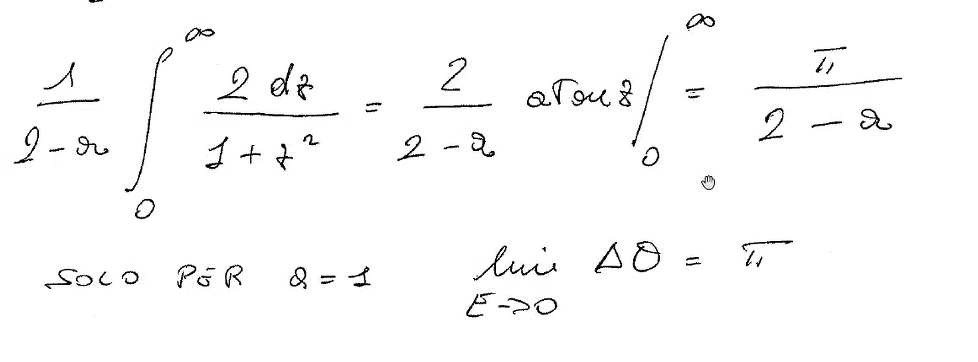 \frac{1}{2-a} \int_0^\infty \frac{2 dz}{1+z^2} = \frac{2}{2-a} atan z \Big|_0^\infty = \frac{\pi}{2-a}
SOLO PER a=1 \lim_{E->0} \Delta\Theta = \pi